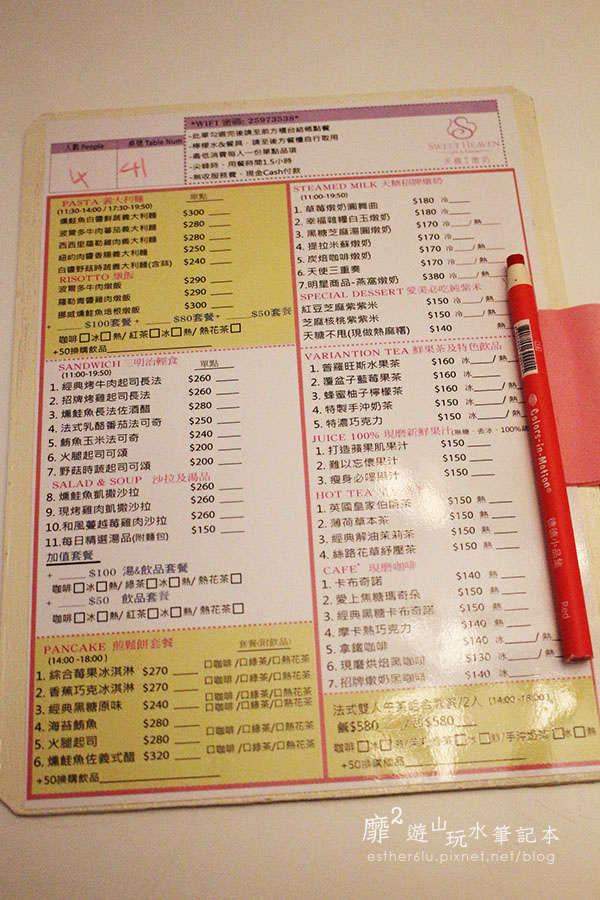 *WIFI 密碼: 25973538*
-此單勾選完後請至前方櫃台結帳點餐
-檸檬水&餐具，請至後方餐櫃自行取用
-最低消費每人一份單點品項
-尖峰時，用餐時間1.5小時
-無收服務費、現金Cash付款
人數 People
桌號 Table Num
4
41
SWEET HEAVEN
PASTA 義大利麵
單點
(11:30-14:00 / 17:30-19:50)
燻鮭魚白醬鮮蔬義大利麵 $300
波爾多牛肉蕃茄義大利麵 $280
西西里羅勒雞肉義大利麵 $280
紐約肉醬香腸義大利麵 $250
白醬野菇時蔬義大利麵(含蒜) $240
RISOTTO 燉飯
波爾多牛肉燉飯 $290
羅勒青醬雞肉燉飯 $290
挪威燻鮭魚焙根燉飯 $300
+ $100套餐+ $80套餐+ $50套餐
咖啡□冰□熱/ 紅茶□冰□熱/ 熱花茶□
+50換購飲品
SANDWICH 三明治輕食 單點
(11:00-19:50)
1. 經典烤牛肉起司長法 $260
2. 招牌烤雞起司長法 $260
3. 燻鮭魚長法佐酒醋 $280
4. 法式乳酪蕃茄法可奇 $250
5. 鮪魚玉米法可奇 $240
6. 火腿起司可頌 $200
7. 野菇時蔬起司可頌 $200
SALAD & SOUP 沙拉及湯品
8. 燻鮭魚凱撒沙拉 $260
9. 現烤雞肉凱撒沙拉 $260
10.和風蔓越莓雞肉沙拉 $260
11.每日精選湯品(附麵包) $150
加值套餐
+ $100 湯&飲品套餐
咖啡□冰□熱/ 綠茶□冰□熱/ 熱花茶□
+ $50 飲品套餐
咖啡□冰□熱/ 紅茶□冰□熱/ 熱花茶□
PANCAKE 煎鬆餅套餐 套餐(附飲品)
(14:00 -18:00)
1. 綜合莓果冰淇淋 $270 □咖啡/□綠茶/□熱花茶
2. 香蕉巧克冰淇淋 $270 □咖啡/□綠茶/□熱花茶
3. 經典黑糖原味 $240 □咖啡/□綠茶/□熱花茶
4. 海苔鮪魚 $280
5. 火腿起司 $280 □咖啡/□綠茶/□熱花茶
6. 燻鮭魚佐義式醋 $320
+50換購飲品
STEAMED MILK 天糖招牌燉奶
(11:00-19:50)
1. 草莓燉奶圓舞曲 $180 冷
2. 幸福雜糧白玉燉奶 $180 冷
3. 黑糖芝麻湯圓燉奶 $170 冷
4. 提拉米蘇燉奶 $170 冷
5. 炭焙咖啡燉奶 $170 冷
6. 天使三重奏 $170 冷
7.明星商品-燕窩燉奶 $380 冷
SPECIAL DESSERT 愛美必吃純紫米
紅豆芝麻紫紫米 $150 冷 /熱
芝麻核桃紫紫米 $150 冷 /熱
天糖不甩(現做熱麻糬) $140 熱
VARIANTION TEA 鮮果茶及特色飲品
1. 普羅旺斯水果茶 $160 冰 /熱
2. 覆盆子藍莓果茶 $160 冰 /熱
3. 蜂蜜柚子檸檬茶 $160 冰 /熱
4. 特製手沖奶茶 $150 冰 /熱
5. 特濃巧克力 $150 冰 /熱
JUICE 100% 現磨新鮮果汁
1. 打造蘋果肌果汁 $150
2. 難以忘懷果汁 $150
3. 瘦身必嘬果汁 $150
HOT TEA
1. 英國皇家伯爵茶 $150 熱
2. 薄荷草本茶 $150 熱
3. 經典解油茉莉茶 $150 熱
4. 絲路花草紓壓茶 $150 熱
CAFE' 現磨咖啡
1. 卡布奇諾 $140 熱
2. 愛上焦糖瑪奇朵 $150 熱
3. 經典黑糖卡布奇諾 $150 熱
4. 摩卡熱巧克力 $140 熱
5. 拿鐵咖啡 $140 冰 /熱
6. 現磨烘焙黑咖啡 $130 冰 /熱
7. 招牌燉奶黑咖啡 $140 熱
(14:00 -18:00)
鹹$580
+50換購飲品
Colors-in-Motion®
德德小品集
Red
靡2遊山玩水筆記本
esther6lu.pixnet.net/blog